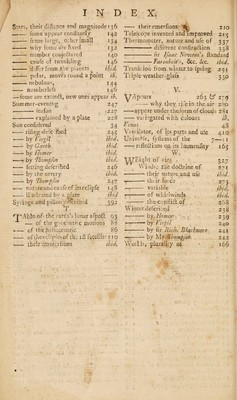 INDEX.
Stars, their distance and magnitude 136
— some appear constantly 142
— some large, other small 34
— why some are fixed 132
— number conjectured 140
— cause of twinkling 146
— differ from the planets ibid.
— polar, moves round a point ib.
— nebulous, 144
— numberless 146
— some are extinct, new ones appear ib.
Summer-evening 247
— indian 227
— explained by a plate 228
Sun considered 34
— rising described 245
— by Virgil ibid.
— by Garth ibid.
— by Homer ibid.
— by Thompson ibid.
— setting described 246
— by the orrery ibid.
— by Thompson 247
— nature and cause of its eclipse 148
— illustrated by a plate ibid.
Syringe and pillory described 392
T.
Table of the earth's lunar aspect 93
— of the geocentric motions 88
— of the heliocentric 86
— of the eclipses of the ist satellite 210
— their immersions ibid.
— their emersions 210
Telescope invented and improved 215
Thermometer, nature and use of 337
— different construction 338
— Sir Isaac Newton's standard
Farenheit's, &c. &c. ibid.
Transition from winter to spring 254
Triple weather-glass 339
V.
Vapours 265 & 279
— why they rise in the air 280
— appear under the form of clouds 281
— variegated with colours ib.
Venus 48
Ventilator, of its parts and use 410
Universe, system of the 7—11
— reflections on its immensity 165
W.
Weight of air 327
Winds, the doctrine of 271
— their nature and use ibid.
— their force 273
— variable ibid.
— of whirlwinds ibid.
— the conflict of 268
Winter described 238
— by Homer 239
— by Virgil 240
— by Sir Rich. Blackmore 241
— by Mr. Thompson 242
Worlds, plurality of 166